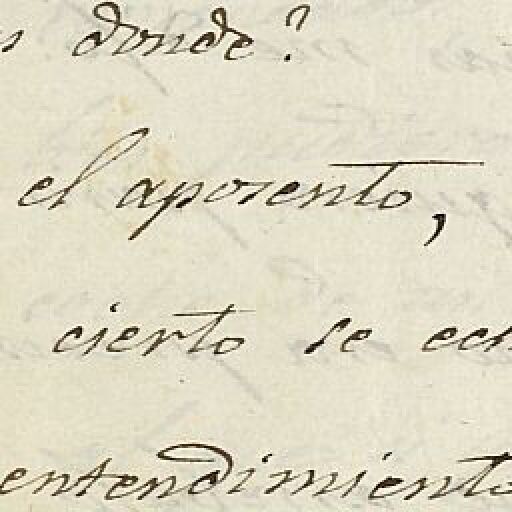 donde?
el aposento,
cierto se ech
entendimiento